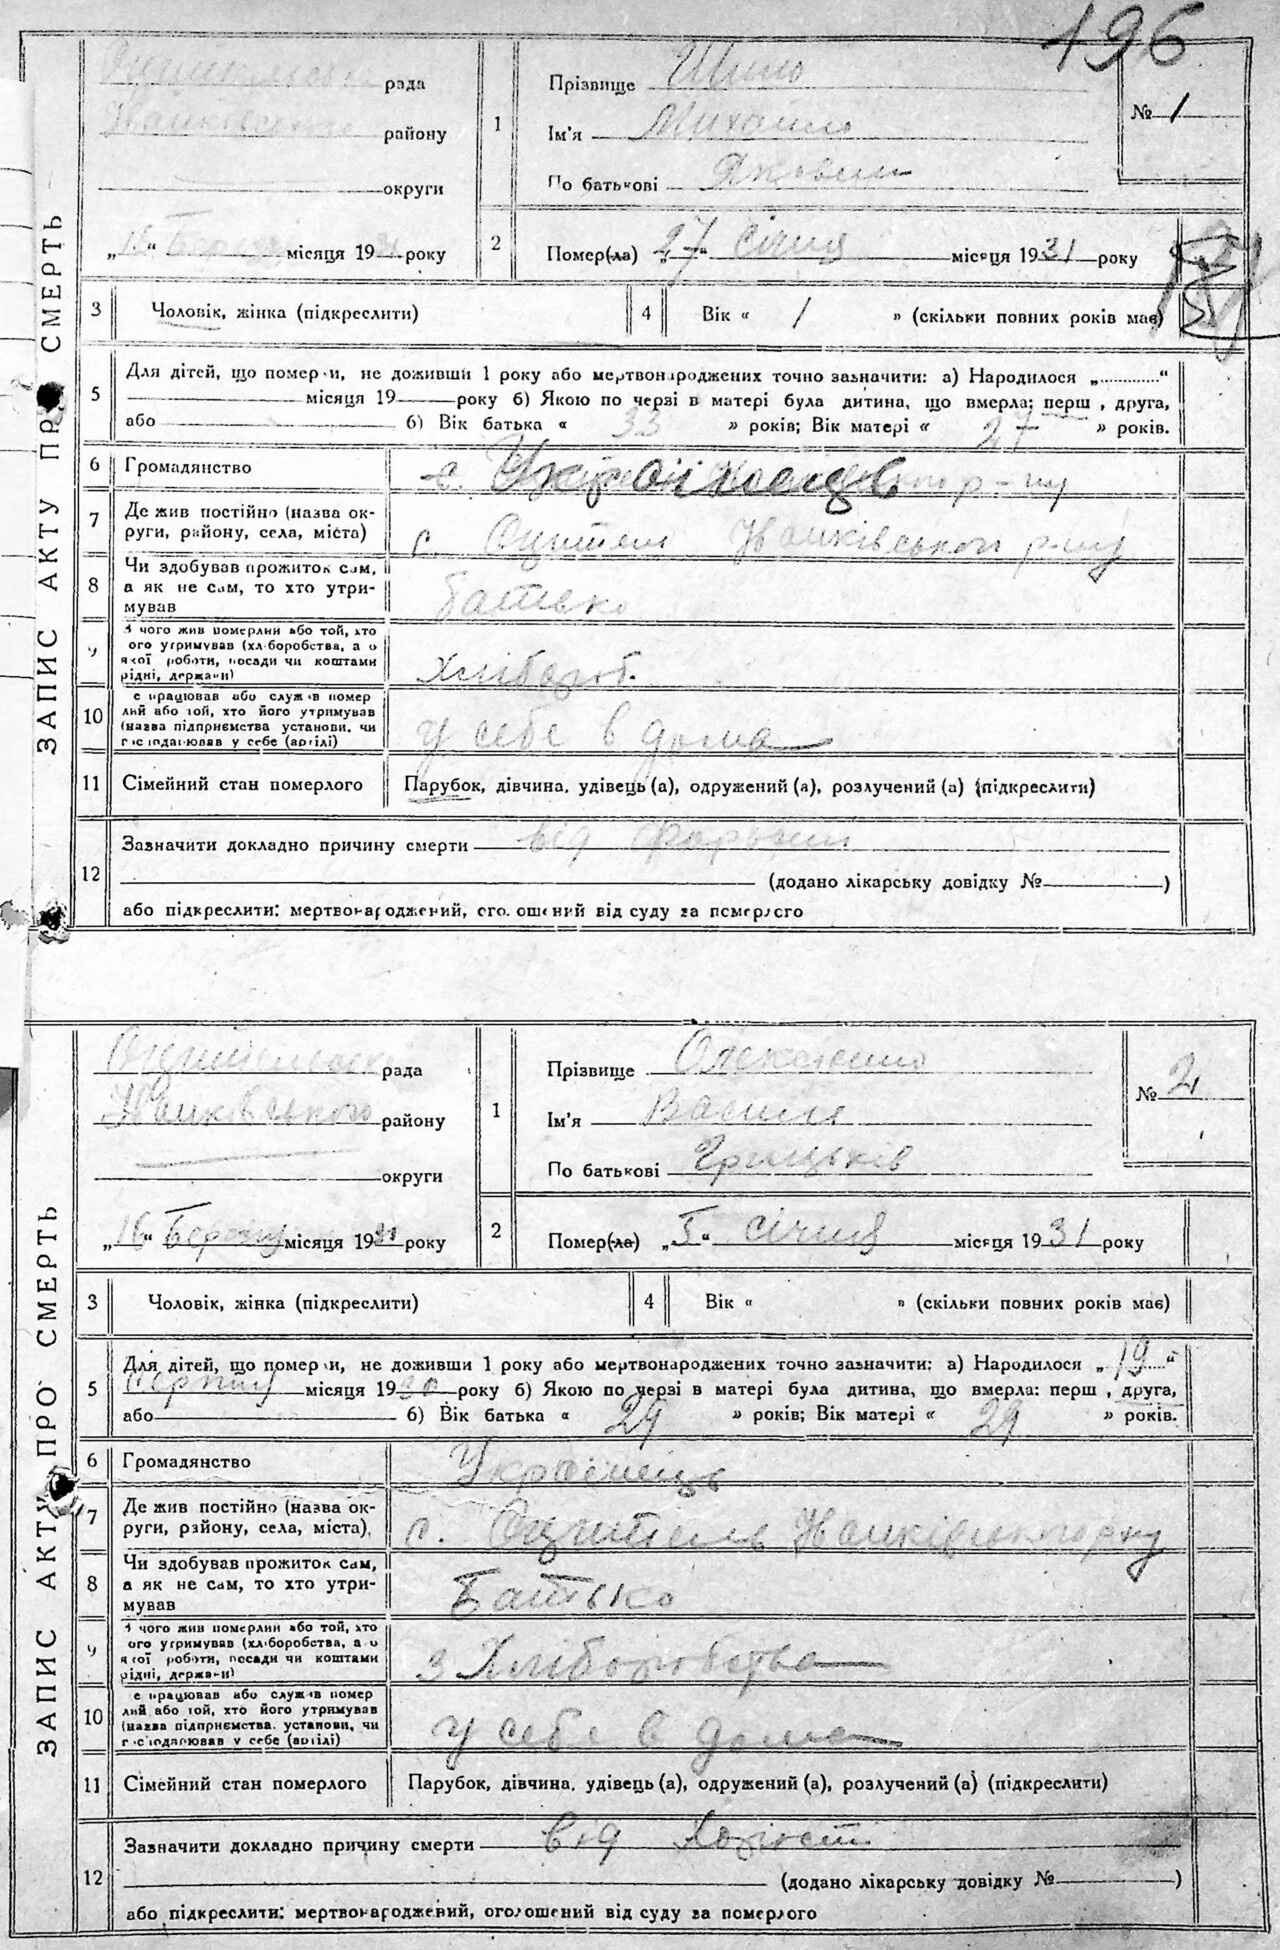 196
ЗАПИС АКТУ ПРО СМЕРТЬ
рада
району
округи
„15“ Березня місяця 1931 року
1
Прізвище Шило
Ім'я Михайло
По батькові Якович
№ 1
2
Помер(ла) „27“ січня місяця 1931 року
3 Чоловік, жінка (підкреслити)
4 Вік « 1 » (скільки повних років має)
5 Для дітей, що померли, не доживши 1 року або мертвонароджених точно зазначити: а) Народилося „............“
місяця 19 року б) Якою по черзі в матері була дитина, що вмерла: перш , друга,
або б) Вік батька « 33 » років; Вік матері « 27 » років.
6 Громадянство Українець
7 Де жив постійно (назва ок-
руги, району, села, міста) с. Іванківського р-ну
8 Чи здобував прожиток сам,
а як не сам, то хто утри-
мував батько
9 З чого жив померлий або той, хто
ого утримував (хліборобства, а о
якої роботи, посади чи коштами
рідні, держави) хлібороб.
10 е працював або служив помер
лий або той, хто його утримував
(назва підприємства установи, чи
господарював у себе (артілі) у себе в дома
11 Сімейний стан померлого Парубок, дівчина, удівець (а), одружений (а), розлучений (а) (підкреслити)
12 Зазначити докладно причину смерти від
(додано лікарську довідку № )
або підкреслити: мертвонароджений, оголошений від суду за померлого
ЗАПИС АКТУ ПРО СМЕРТЬ
рада
Іванківського району
округи
„16“ Березня місяця 1931 року
1
Прізвище
Ім'я Василь
По батькові Грицьків
№ 2
2
Помер(ла) „5“ січня місяця 1931 року
3 Чоловік, жінка (підкреслити)
4 Вік « » (скільки повних років має)
5 Для дітей, що померли, не доживши 1 року або мертвонароджених точно зазначити: а) Народилося „19“
серпня місяця 1930 року б) Якою по черзі в матері була дитина, що вмерла: перш , друга,
або б) Вік батька « 29 » років; Вік матері « 29 » років.
6 Громадянство Українець
7 Де жив постійно (назва ок-
руги, району, села, міста) с. Іванківського р-ну
8 Чи здобував прожиток сам,
а як не сам, то хто утри-
мував Батько
9 З чого жив померлий або той, хто
ого утримував (хліборобства, а о
якої роботи, посади чи коштами
рідні, держави) з Хліборобства
10 е працював або служив помер
лий або той, хто його утримував
(назва підприємства, установи, чи
господарював у себе (артілі) у себе в дома
11 Сімейний стан померлого Парубок, дівчина, удівець (а), одружений (а), розлучений (а) (підкреслити)
12 Зазначити докладно причину смерти від
(додано лікарську довідку № )
або підкреслити: мертвонароджений, оголошений від суду за померлого